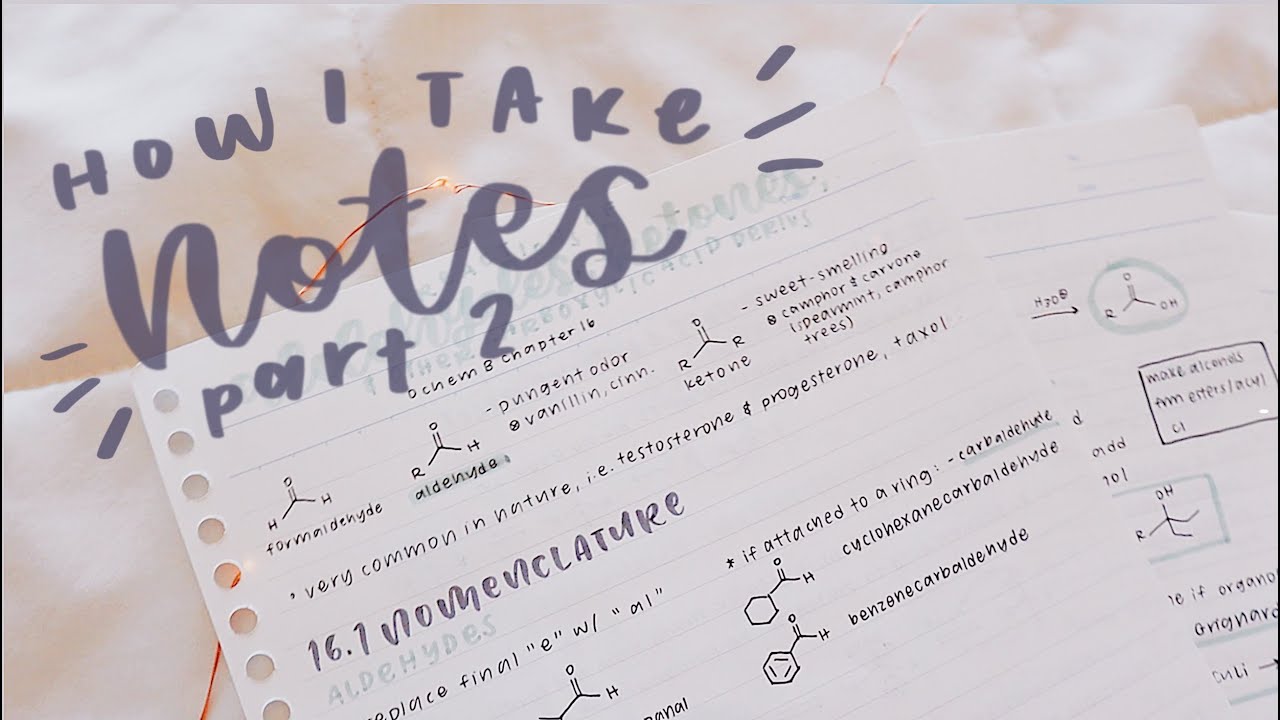 HOW I TAKE
notes
part 2
aldehydes, ketones,
ochem B chapter 16
H
O
H
formaldehyde
O
R
H
aldehyde
- pungent odor
vanillin, cinn.
O
R
R
ketone
- sweet-smelling
camphor & carvone
(spearmint, camphor
trees)
, very common in nature, i.e. testosterone & progesterone, taxol
16.1 NOMENCLATURE
ALDEHYDES
replace final "e" w/ "al"
O
H
* if attached to a ring: - carbaldehyde
O
H
cyclohexanecarbaldehyde
O
H
benzenecarbaldehyde
H3O⊕
O
R
OH
make alcohols
frm esters/acyl
Cl
add
OH
R
if organo
Grignard
CuLi →